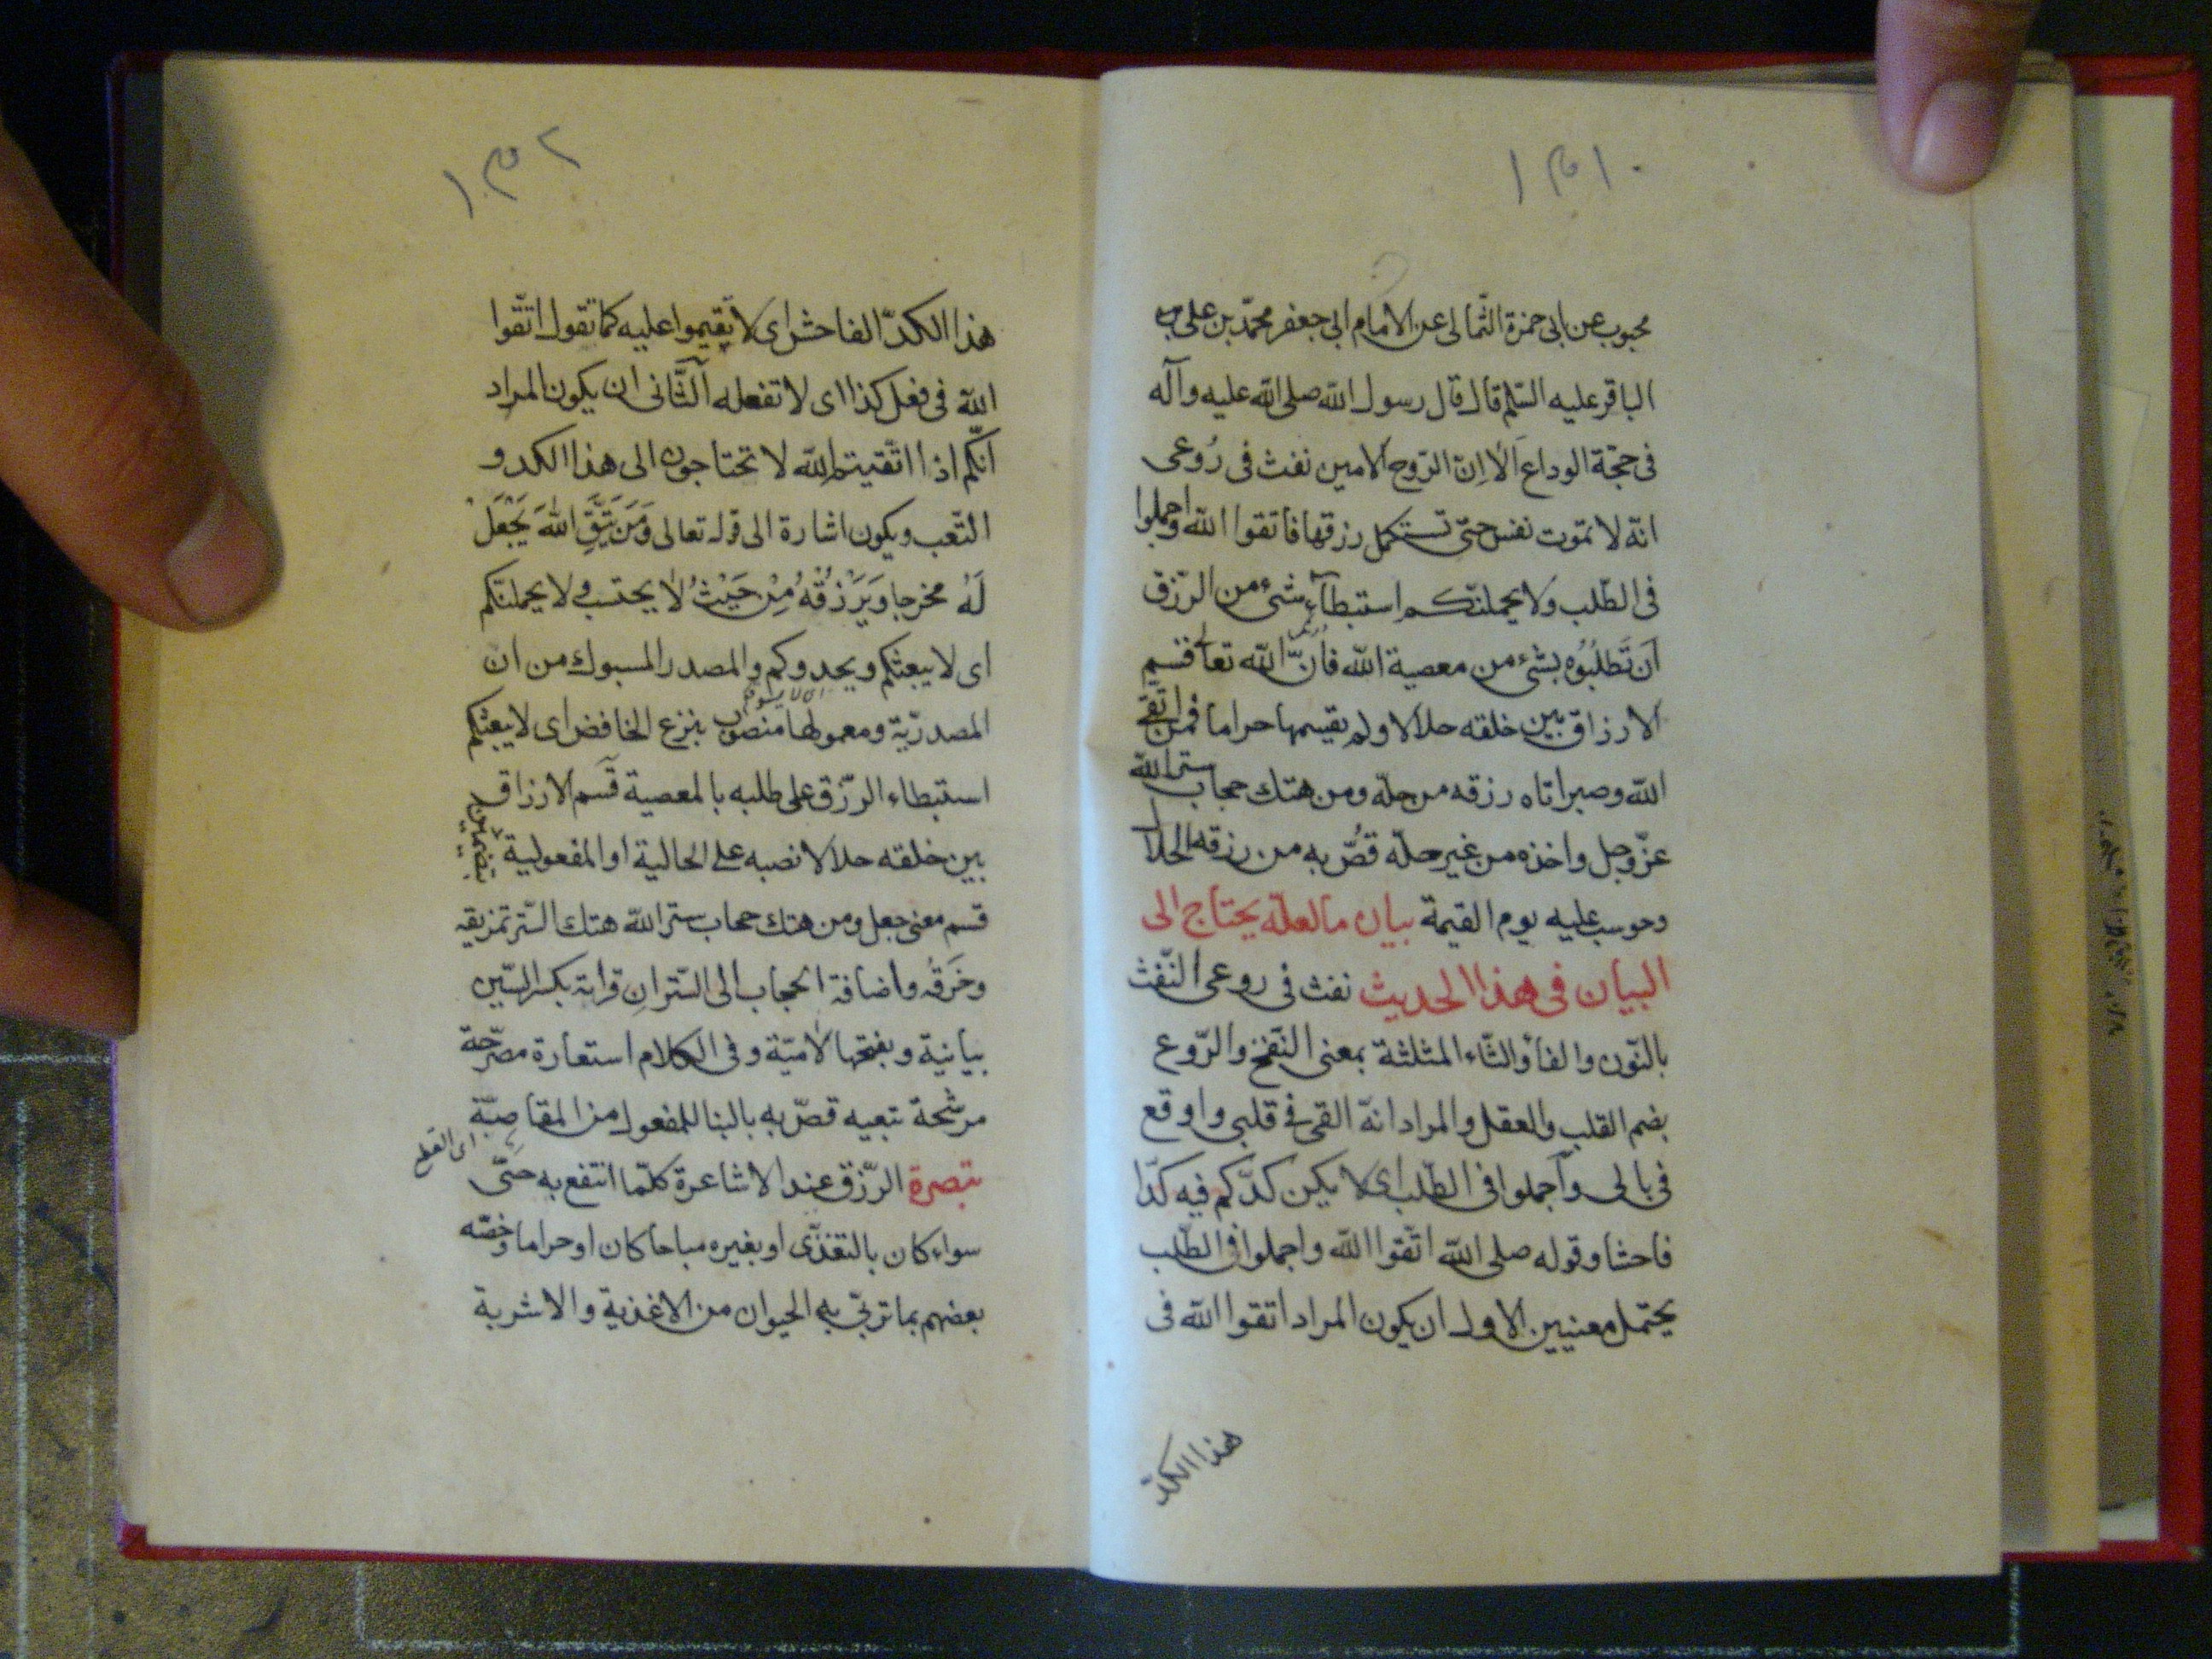 محبوب عن ابى حمزة الثّمالى عن الامام ابى جعفر محمّد بن على
الباقر عليه السّلم قال قال رسول الله صلى الله عليه وآله
فى حجّة الوداع اَلا اِنّ الرّوح الامين نفث فى رُوعى
انّه لا تموت نفس حتى تستكمل رزقها فاتقوا الله واجملوا
فى الطّلب ولا يحملنّكم استبطآء شىء من الرّزق
اَن تَطلُبُوه بشىء من معصية الله فاِنّ الله تعالى قسم
الارزاق بين خلقه حلالا ولم يقسمها حراما فمن اتّقى
الله وصبر اتاه رزقه من حلّه ومن هتك حجاب ستر الله
عزّ وجل واخذه من غير حلّه قُصّ به من رزقه الحلال
وحوسب عليه يوم القيمة بيان ما لعلّه يحتاج الى
البيان فى هذا الحديث نفث فى روعى النّفث
بالنّون والفاء والثّاء المثلثة بمعنى النّفخ والرّوع
بضم القلب والعقل والمراد انّه القى فى قلبى واوقع
فى بالى واَجملوا فى الطّلب اى لا يكن كدّكم فيه كدّا
فاحشا وقوله صلى الله اتّقوا الله واجملوا فى الطّلب
يحتمل معنيين الاول ان يكون المراد اتقوا الله فى
هذا الكدّ
هذا الكدّ الفاحش اى لا تقيموا عليه كما تقول اتّقوا
الله فى فعل كذا اى لا تفعله الثّانى ان يكون المراد
انّكم اذا اتّقيتم الله لا تحتاجون الى هذا الكد و
التّعب ويكون اشارة الى قوله تعالى وَمَن يَتَّقِ اللهَ يَجْعَلْ
لَهُ مخرجا وَيَرْزُقْهُ مِنْ حَيْثُ لا يحتسب ولا يحملنّكم
اى لا يبعثكم ويحدوكم والمصدر المسبوك من ان
المصدريّة ومعمولها منصوب بنزع الخافض اى لا يبعثكم
استبطاء الرّزق على طلبه بالمعصية قَسَم الارزاق
بين خلقه حلالا نصبه على الحالية او المفعولية بتضمين
قسم معنى جعل ومن هتك حجاب ستر الله هتك السّتر تمزيقه
وخَرَقُه واضافة الحجاب الى السّتر اِن قرأته بكسر السّين
بيانية وبفتحها لاميّة وفى الكلام استعارة مصرّحة
مرشّحة تبعيه قصّ به بالبنا للمفعول من المقاصّة
اى القطع
تبصرة الرّزق عند الاشاعرة كلّما انتفع به حىّ
سواء كان بالتغذّى او بغيره مباحا كان او حراما وخصّه
بعضهم بما تربّى به الحيوان من الاغذية والاشربة